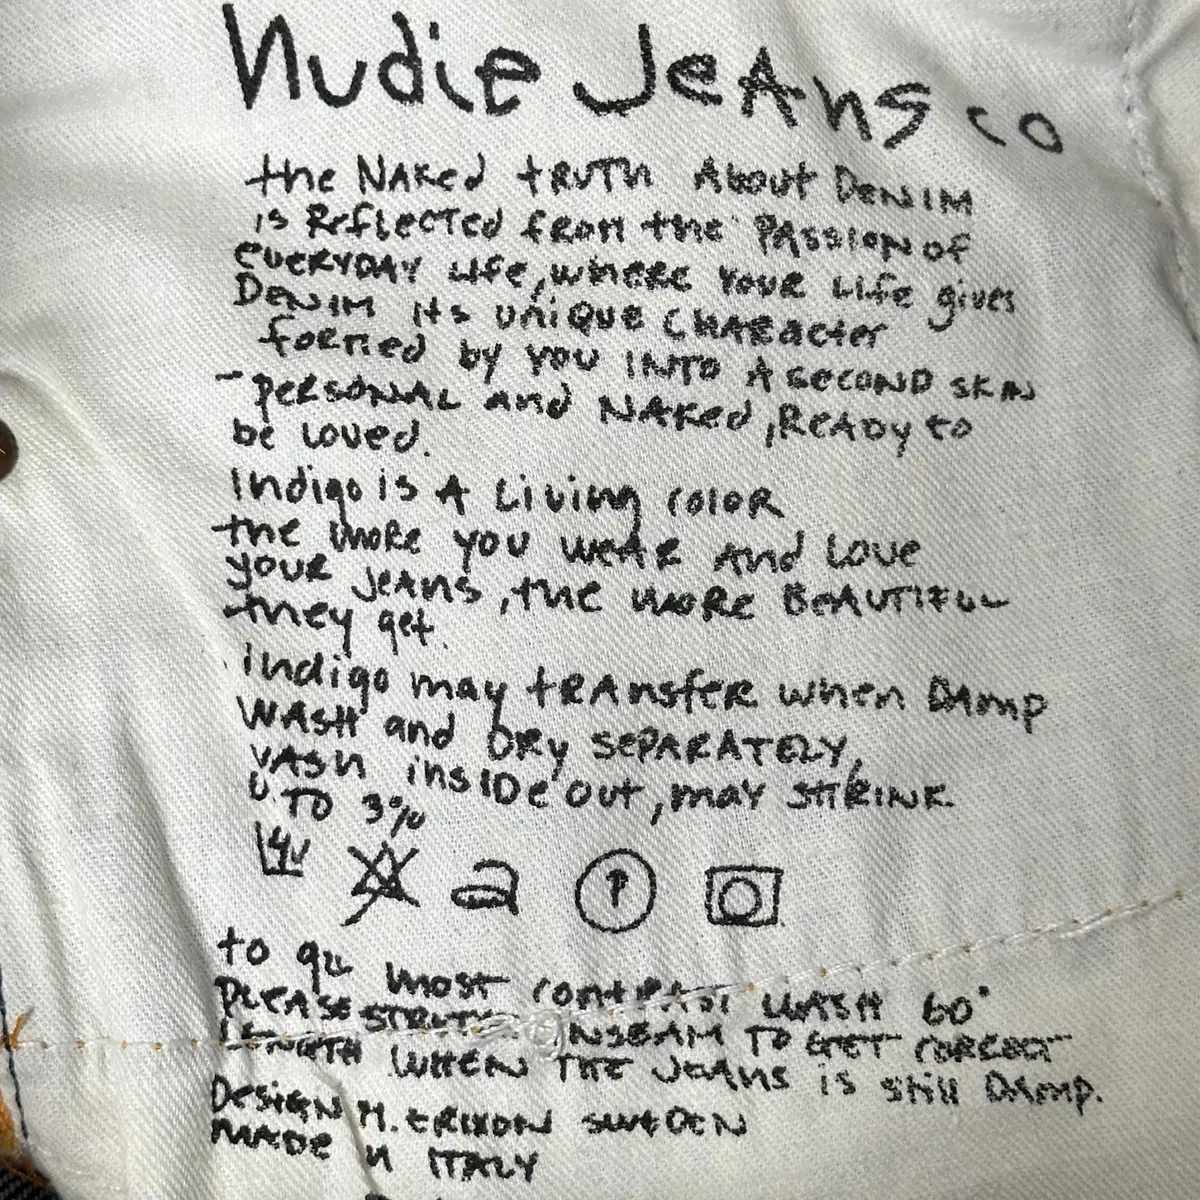 nudie JeAns co
the NAKed tRUTh About DENIM
is Reflected from the PASSION of
eveRYDAY Life, where Your Life gives
DENIM its unique CHARacter
formed by you INTO A seCOND SKIN
- peRSONAL and NAKed, ReADy to
be loved.
Indigo is A Living coloR
the moRe you weAR And Love
youR JeAns, the moRe BeAUTIFUL
they get.
indigo may tRAnsfeR when DAmp
WASH and DRy SePARATELY,
WAsh insIDe out, may SHRINK
TO 3%
to most contRAst WASH 60°
PLEASE INSEAM TO GET CORRECT
WHEN THE JeAns is still DAmp.
DesiGN M. ERIXON SWEDEN
MADE IN ITALY